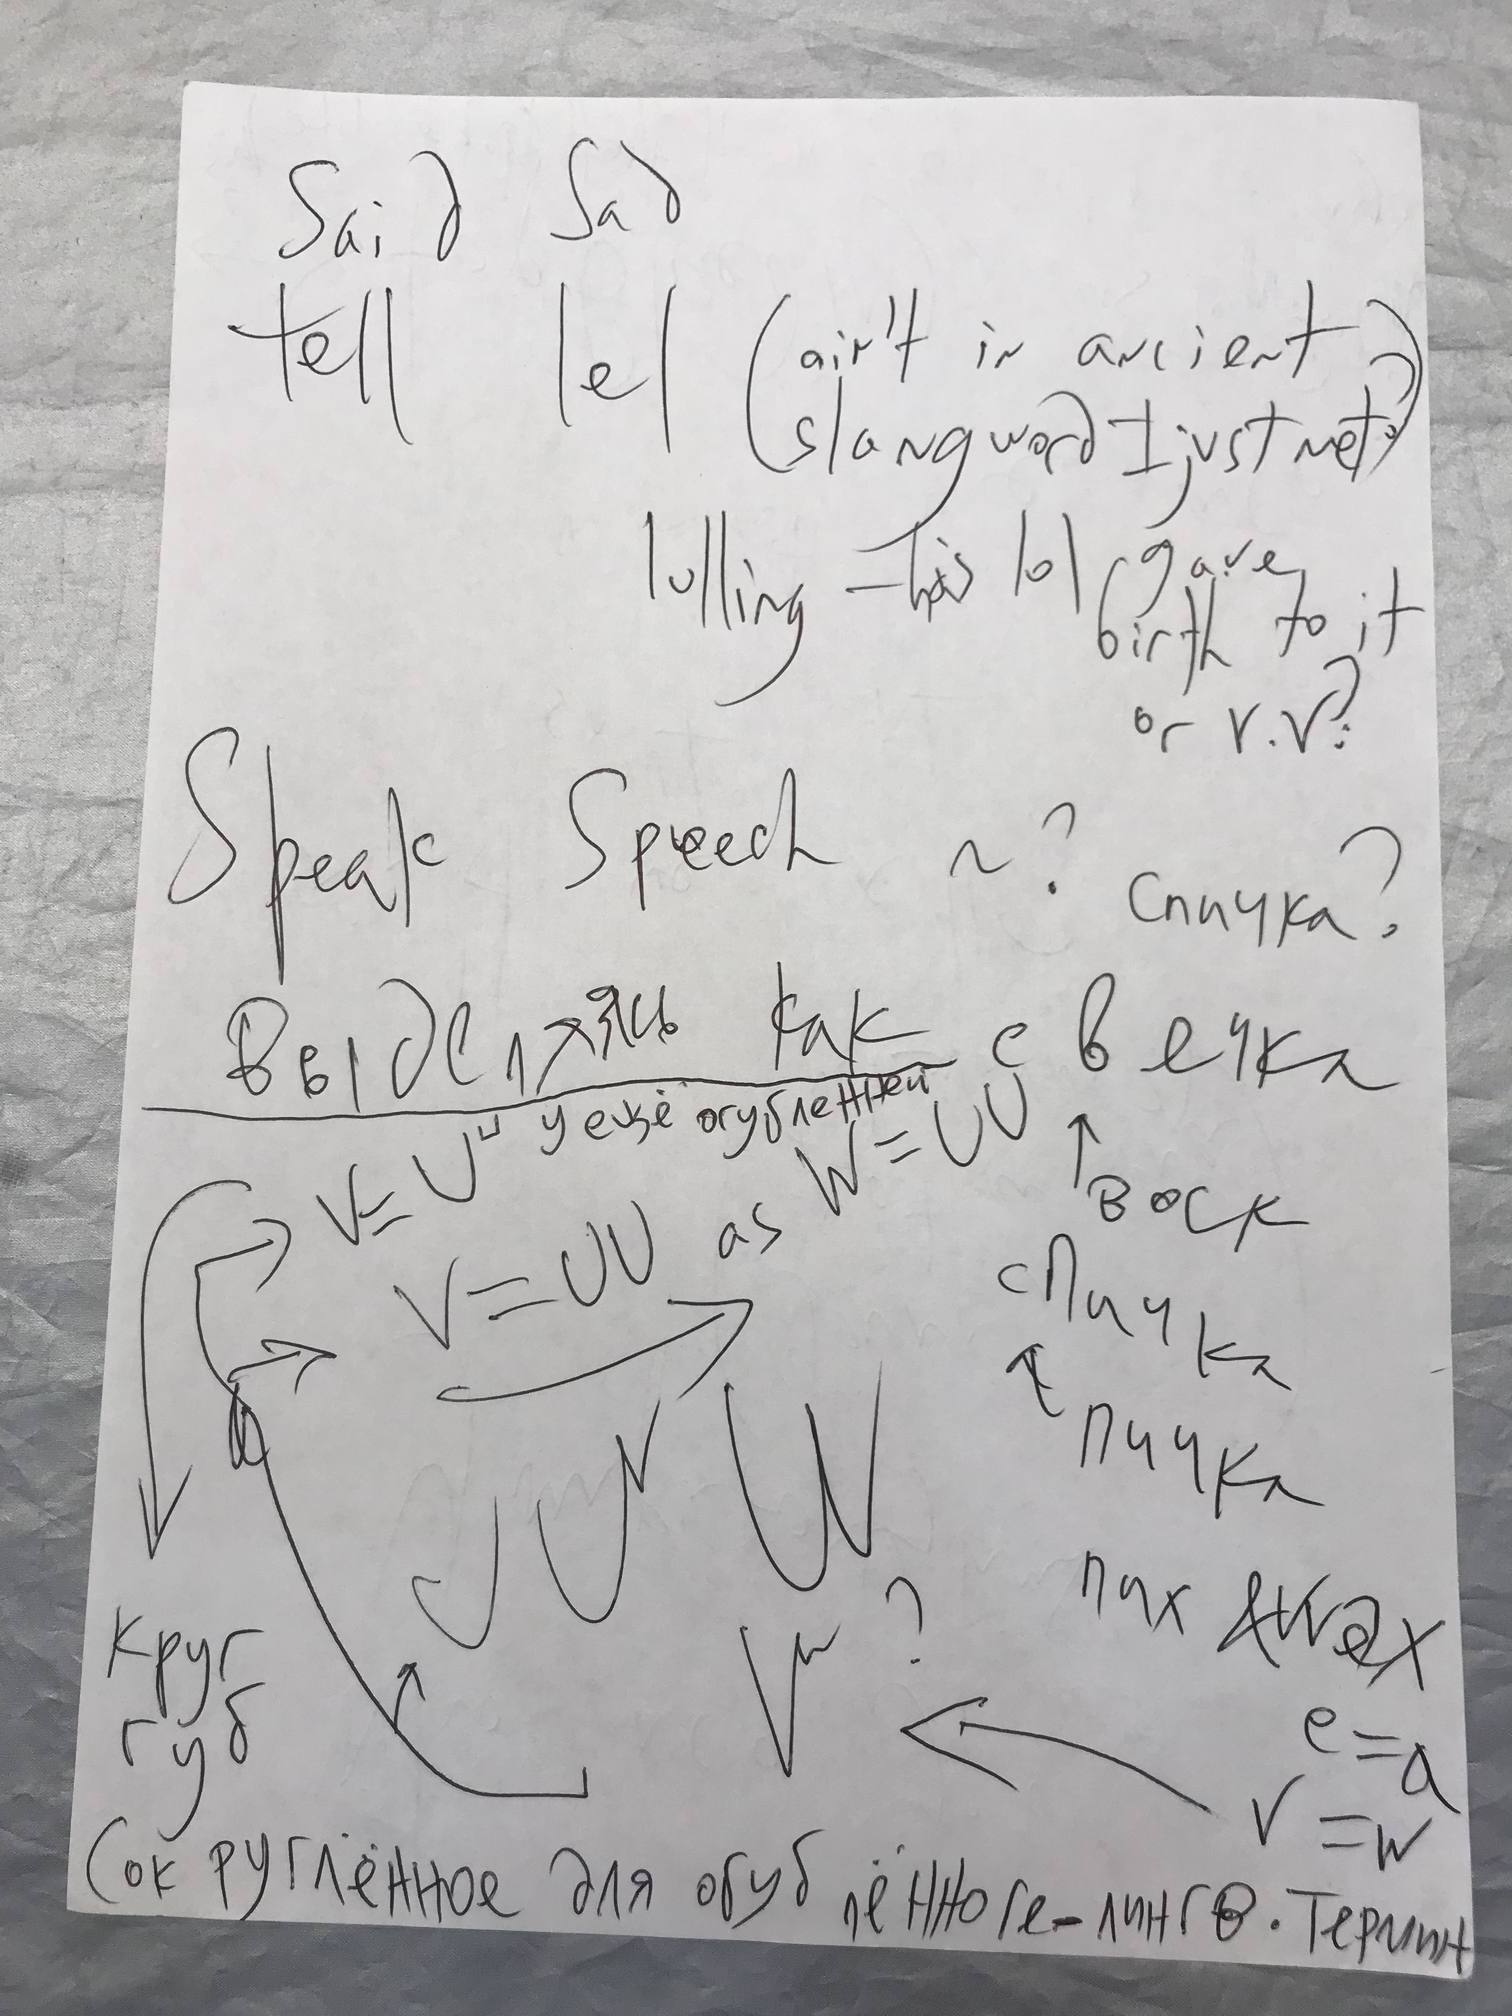 Said Sad
tell lel (ain't in ancient
slang word I just met?)
lulling - has lol gave
birth to it
or v.v?
Speak Speech ~? спичка?
как свечка
у ещё огубленней
V=U W=UU
воск
V=UU as
спичка
пичка
U U W
пих wax
V ?
круг
губ
e=a
v=w
Сокруглённое для огублённоге-лингв. Термин